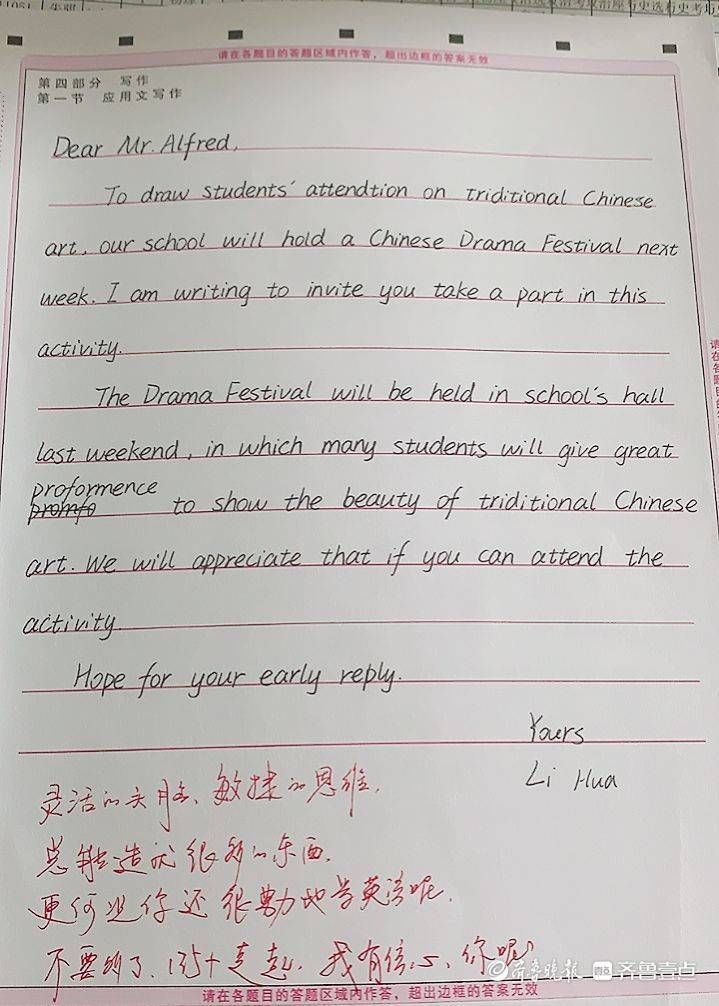 请在各题目的答题区域内作答，超出边框的答案无效
第四部分 写作
第一节 应用文写作
Dear Mr. Alfred,
To draw students' attendtion on triditional Chinese
art, our school will hold a Chinese Drama Festival next
week. I am writing to invite you take a part in this
activity.
The Drama Festival will be held in school's hall
last weekend, in which many students will give great
proformence
to show the beauty of triditional Chinese
art. We will appreciate that if you can attend the
activity
Hope for your early reply.
Yours
Li Hua
灵活的头脑、敏捷的思维，
总能造就很多的东西，
更何况你还很努力地学英语呢，
不要到了、135+走起，我有信心，你呢
齐鲁晚报 齐鲁壹点
请在各题目的答题区域内作答，超出边框的答案无效